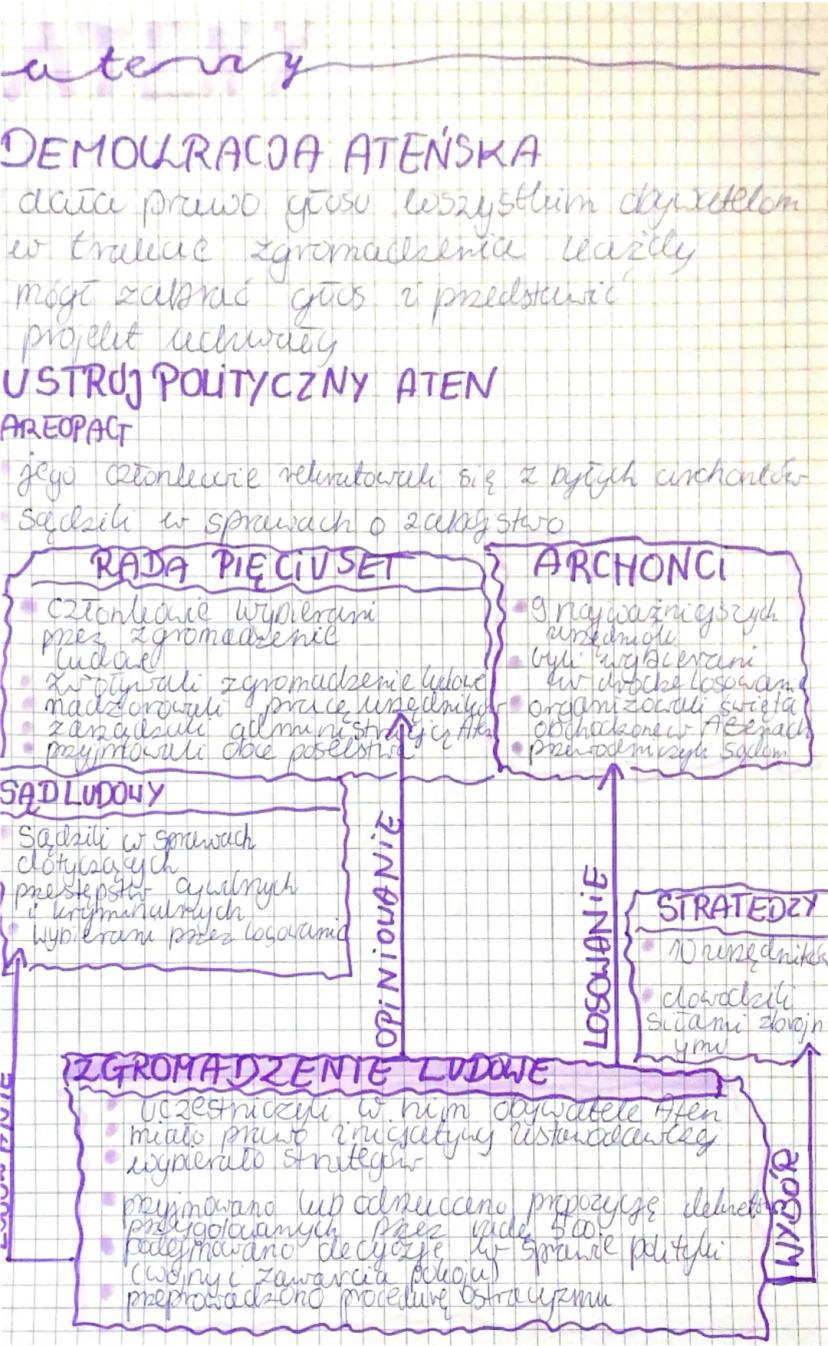 ateny
DEMOKRACJA ATEŃSKA
dała prawo głosu wszystkim obywatelom
w trakcie zgromadzenia każdy
mógł zabrać głos i przedstawić
projekt uchwały
USTRÓJ POLITYCZNY ATEN
AREOPAG
jego członkowie rekrutowali się z byłych archontów
sądzili w sprawach o zabójstwo
RADA PIĘCIUSET
członkowie wybierani
przez zgromadzenie
ludowe
zwoływali zgromadzenie ludowe
nadzorowali pracę urzędników
zarządzali administracją Aten
przyjmowali obce poselstwa
ARCHONCI
9 najważniejszych
urzędników
byli wybierani
w drodze losowania
organizowali święta
obchodzone w Atenach
przewodniczyli sądom
SĄD LUDOWY
sądzili w sprawach
dotyczących
przestępstw cywilnych
i kryminalnych
wybierani przez losowanie
OPINIOWANIE
LOSOWANIE
STRATEDZY
10 urzędników
dowodzili
siłami zbrojn
ymi
ZGROMADZENIE LUDOWE
uczestniczyli w nim obywatele Aten
miało prawo inicjatywy ustawodawczej
wybierało strategów
przyjmowano lub odrzucano propozycję dekretów
przygotowanych przez radę 500
podejmowano decyzje w sprawie polityki
(wojny i zawarcia pokoju)
przeprowadzono procedurę ostracyzmu
WYBÓR